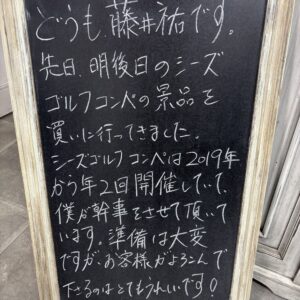 どうも、藤井祐です。
先日、明後日のシーズ
ゴルフコンペの景品を
買いに行ってきました。
シーズゴルフコンペは2019年
から年2回開催していて、
僕が幹事をさせて頂いて
います。準備は大変
ですが、お客様がよろこんで
下さるのはとてもうれしいです。